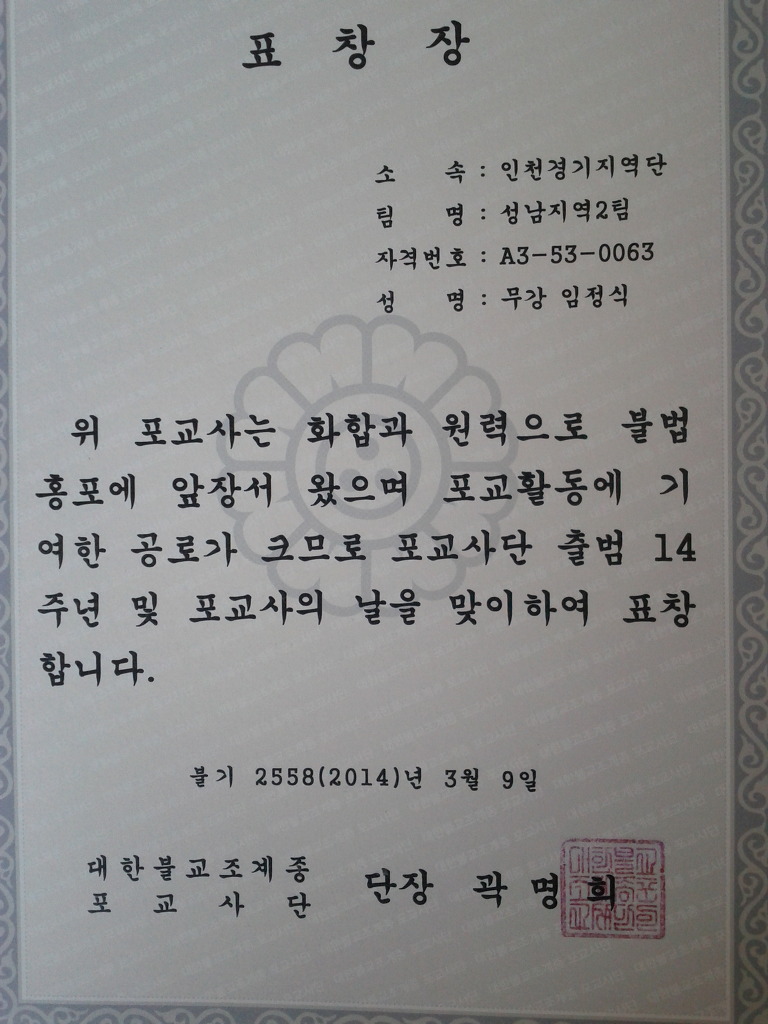 표 창 장
소 속 : 인천경기지역단
팀 명 : 성남지역2팀
자격번호 : A3-53-0063
성 명 : 무강 임정식
위 포교사는 화합과 원력으로 불법
홍포에 앞장서 왔으며 포교활동에 기
여한 공로가 크므로 포교사단 출범 14
주년 및 포교사의 날을 맞이하여 표창
합니다.
불기 2558(2014)년 3월 9일
대한불교조계종
포 교 사 단
단장 곽명희